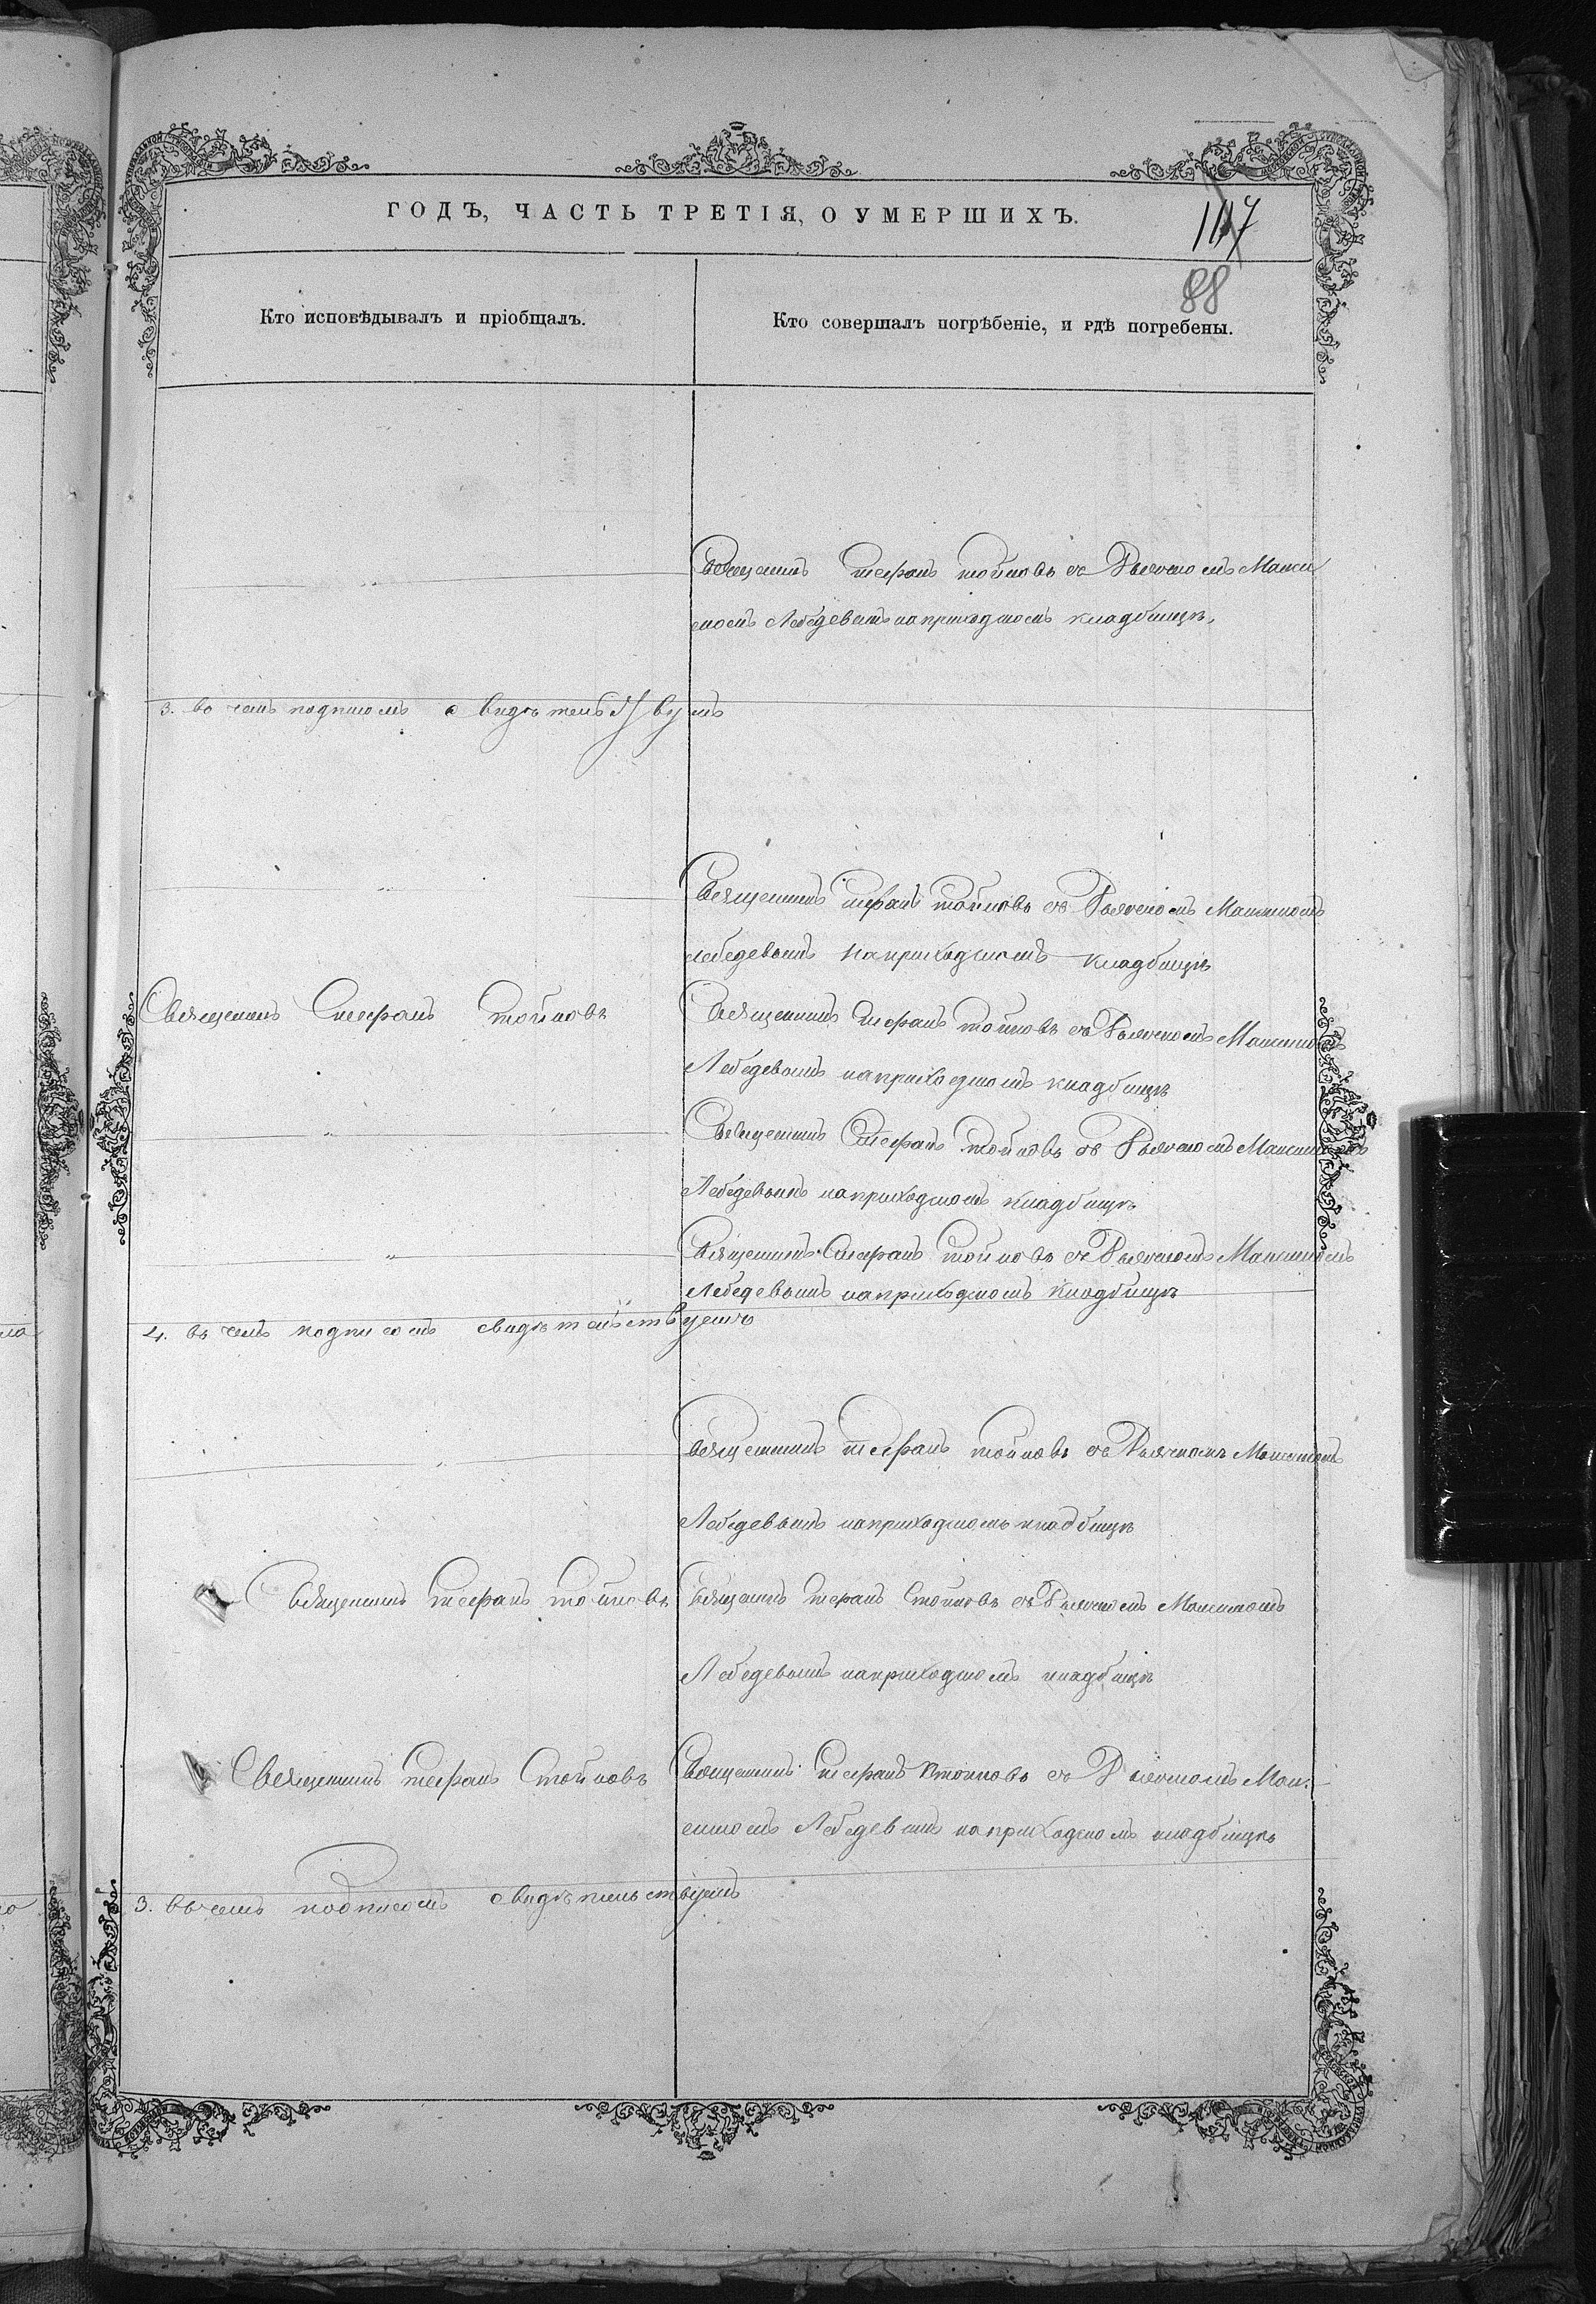 ГОДЪ, ЧАСТЬ ТРЕТІЯ, О УМЕРШИХЪ.
117
88
Кто исповѣдывалъ и пріобщалъ.
Кто совершалъ погрѣбеніе, и гдѣ погребены.
Священникъ Стефанъ Стойковъ съ Дьячкомъ Макси
момъ Лебедевымъ на приходскомъ кладбищѣ,
3. въ чемъ подписомъ свидѣтельствуемъ
Священникъ Стефанъ Стойковъ съ Дьячкомъ Максимомъ
Лебедевымъ на приходскомъ кладбищѣ
Священникъ Стефанъ Стойковъ
Священникъ Стефанъ Стойковъ съ Дьячкомъ Максимомъ
Лебедевымъ на приходскомъ кладбищѣ
Священникъ Стефанъ Стойковъ съ Дьячкомъ Максимомъ
Лебедевымъ на приходскомъ кладбищѣ
Священникъ Стефанъ Стойковъ съ Дьячкомъ Максимомъ
Лебедевымъ на приходскомъ кладбищѣ
4. въ чемъ подписомъ свидѣтельствуемъ
Священникъ Стефанъ Стойковъ съ Дьячкомъ Максимомъ
Лебедевымъ на приходскомъ кладбищѣ
Священникъ Стефанъ Стойковъ
Священникъ Стефанъ Стойковъ съ Дьячкомъ Максимомъ
Лебедевымъ на приходскомъ кладбищѣ
Священникъ Стефанъ Стойковъ
Священникъ Стефанъ Стойковъ съ Дьячкомъ Мак-
симомъ Лебедевымъ на приходскомъ кладбищѣ
3. въ чемъ подписомъ свидѣтельствуемъ